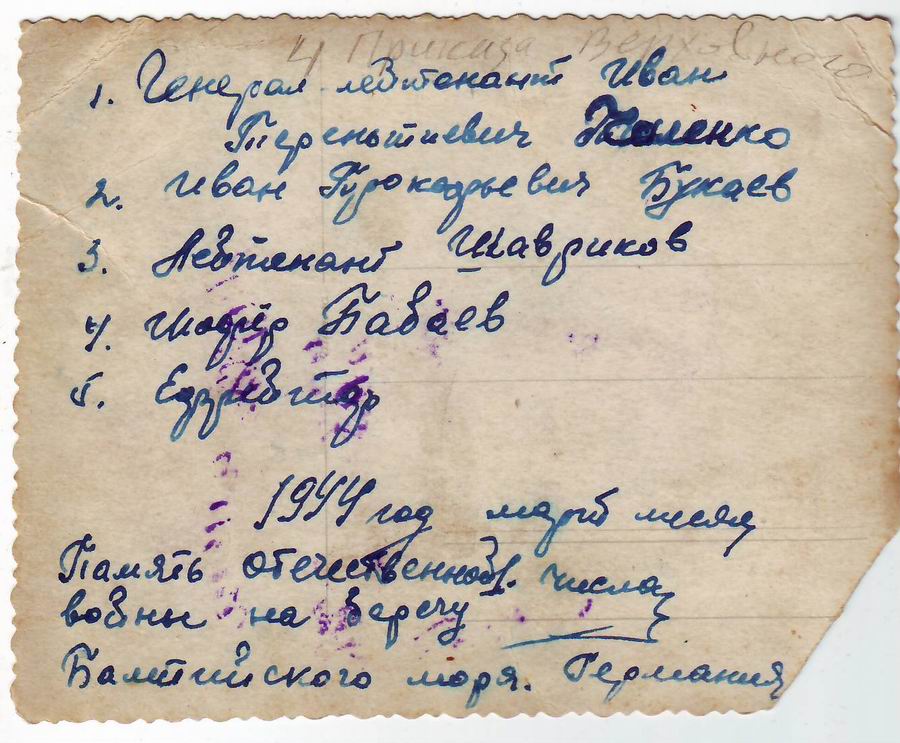 4 Приказа Верховного
1. Генерал лейтенант Иван
Терентьевич Коленко
2. Иван Прокофьевич Букаев
3. Лейтенант Шавриков
4. шофёр Бабаев
5.
1944 год март месяц
Память отечественной 1. числа
войны на берегу
Балтийского моря. Германия